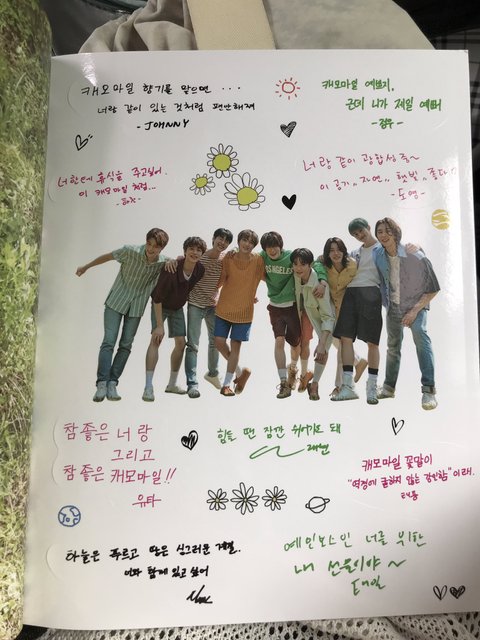 캐모마일 향기를 맡으면 ...
너랑 같이 있는 것처럼 편안해져
-JOHNNY
캐모마일 예쁘지,
근데 니가 제일 예뻐
-정우-
너한테 휴식을 주고싶어.
이 캐모마일 처럼...
너랑 같이 광합성 중~
이 공기,, 자연,, 햇빛,, 좋다!
-도영-
LOS ANGELES
참 좋은 너랑
그리고
참 좋은 캐모마일!!
유타
힘들 땐 잠깐 쉬어가도 돼
캐모마일 꽃말이
"역경에 굴하지 않는 강인함" 이래.
태용
하늘은 푸르고 땅은 싱그러운 계절..
너와 함께 있고 싶어
예일보스인 너를 위한
내 선물이야~
태일